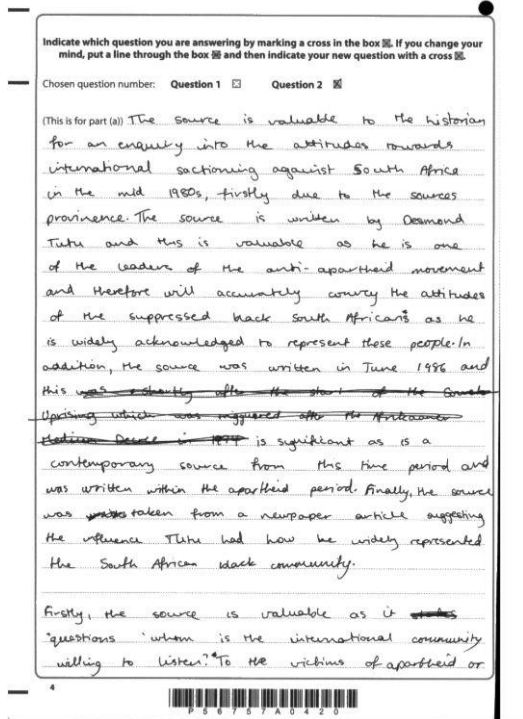 Indicate which question you are answering by marking a cross in the box ☒. If you change your
mind, put a line through the box and then indicate your new question with a cross ☒.
Chosen question number: Question 1 ☒ Question 2 ☒
(This is for part (a)) The source is valuable to the historian
for an enquiry into the attitudes towards
international sactioning agaainst South Africa
in the mid 1980s, firstly due to the sources
provinence. The source is written by Desmond
Tutu and this is valuable as he is one
of the leaders of the anti-apartheid movement
and therefore will accurately convey the attitudes
of the suppressed black South Africans as he
is widely acknowledged to represent these people. In
addition, the source was written in June 1986 and
this was shortly after the start of the Soweto
Uprising which was triggered after the Afrikaaner
Medium Decree in 1974 is significant as is a
contemporary source from this time period and
was written within the apartheid period. Finally, the source
was taken from a newpaper article suggesting
the influence Tutu had how he widely represented
the South African black community.
Firstly, the source is valuable as it states
"questions 'whom is the international community
willing to listen? "To the victims of apartheid or
4
P56757A0420